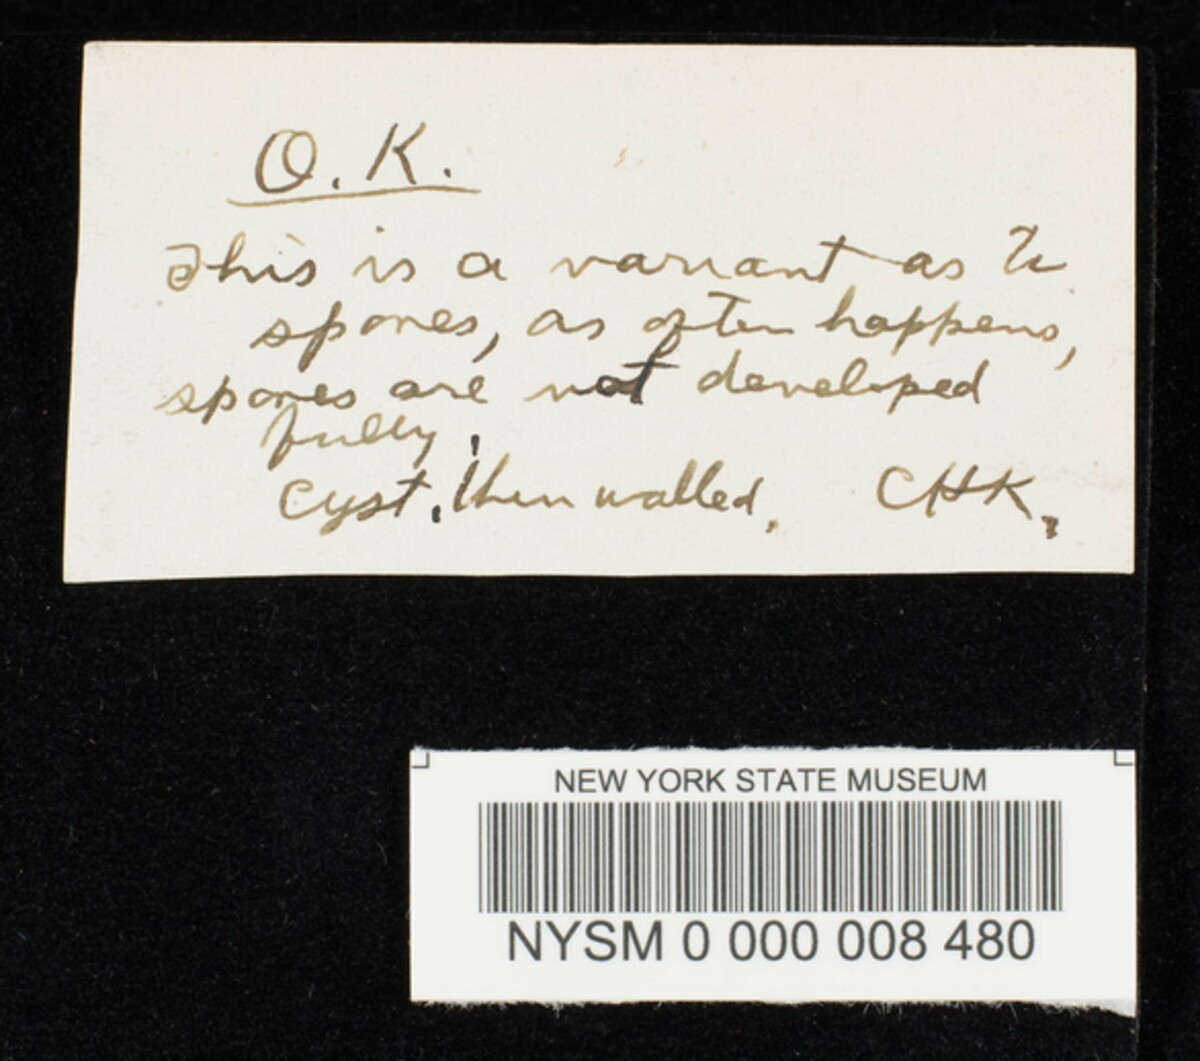 O. K.
This is a variant as to
spores, as often happens,
spores are not developed
fully,
cyst. thin walled. CHK.
NEW YORK STATE MUSEUM
NYSM 0 000 008 480